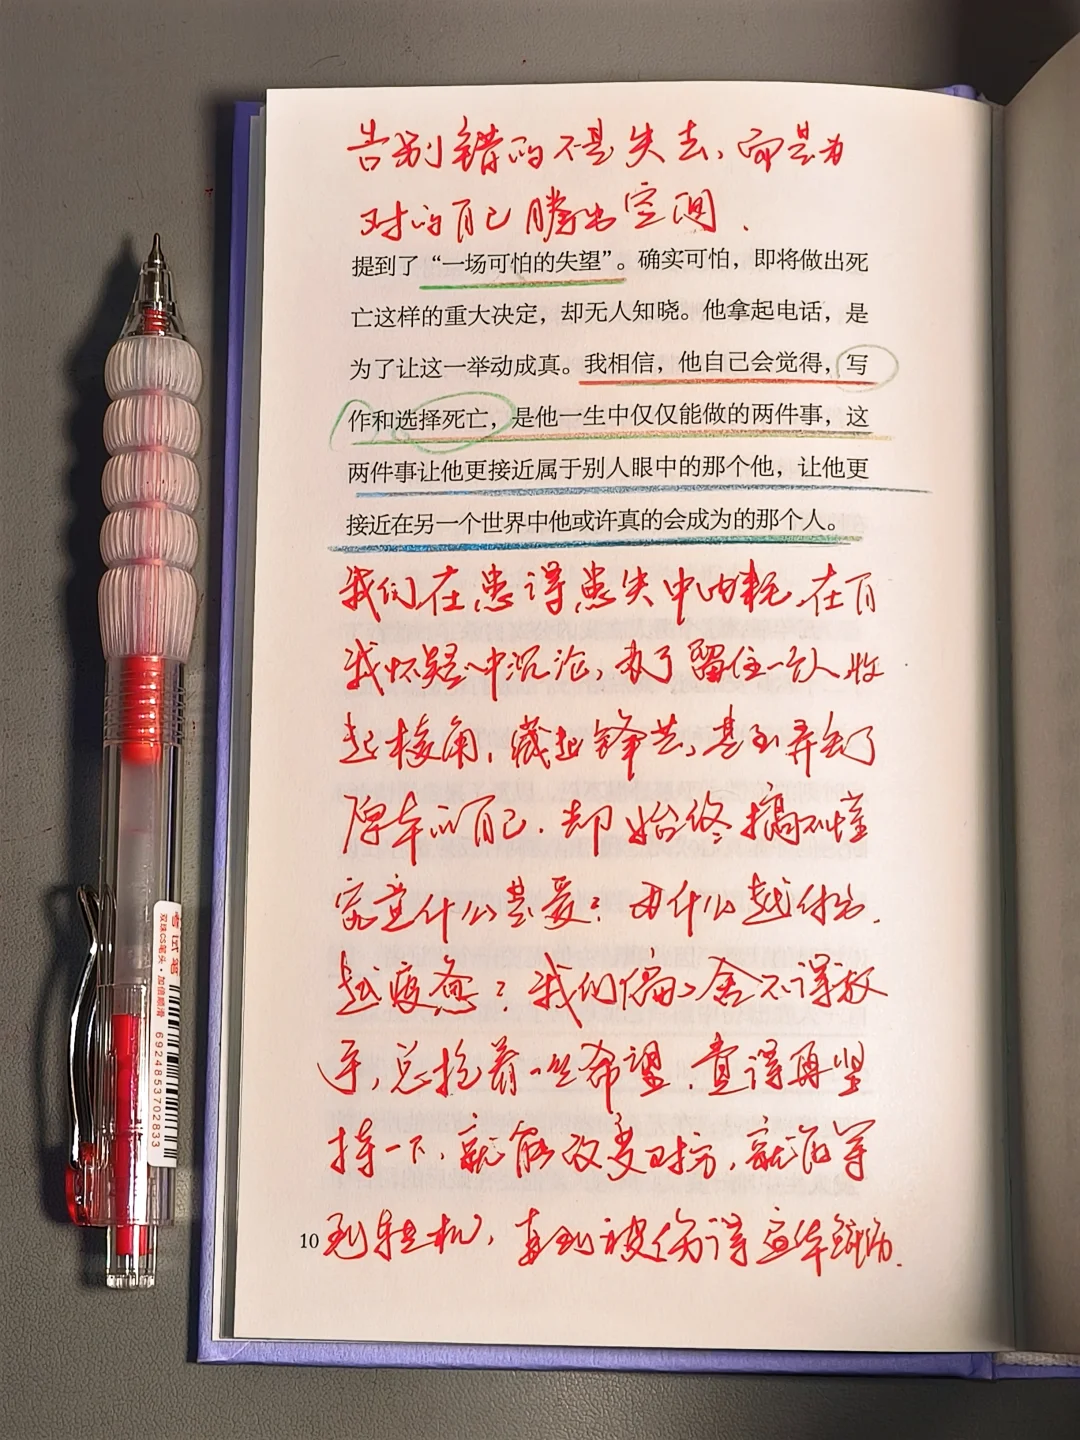 告别错的不是失去，而是为
对的自己腾出空间.
提到了“一场可怕的失望”。确实可怕，即将做出死
亡这样的重大决定，却无人知晓。他拿起电话，是
为了让这一举动成真。我相信，他自己会觉得，写
作和选择死亡，是他一生中仅仅能做的两件事，这
两件事让他更接近属于别人眼中的那个他，让他更
接近在另一个世界中他或许真的会成为的那个人。
我们在患得患失中内耗，在自
我怀疑中沉沦，为了留住一个人收
起棱角，藏起锋芒，甚至弄丢了
原本的自己，却始终搞不懂
究竟什么是爱？为什么越付出，
越疲惫？我们偏偏舍不得放
手，总抱着一丝希望，觉得再坚
持一下，就能改变对方，就能等
到转机，直到被伤得遍体鳞伤.
10
考试笔
双珠cs笔头·加倍顺滑
6924853702833